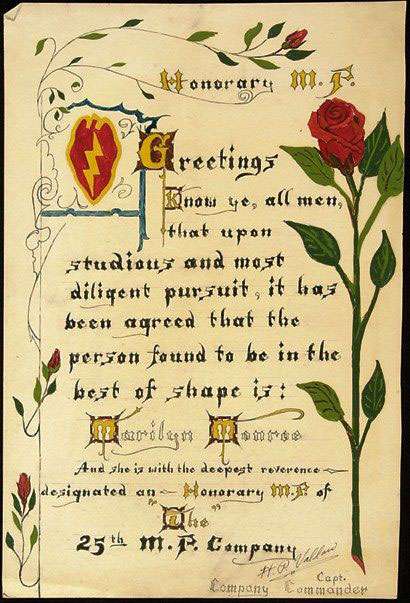 Honorary M.P.
Greetings
Know ye, all men,
that upon
studious and most
diligent pursuit, it has
been agreed that the
person found to be in the
best of shape is:
Marilyn Monroe
And she is with the deepest reverence
designated an Honorary M.P. of
"The"
25th M.P. Company
Capt.
Company Commander